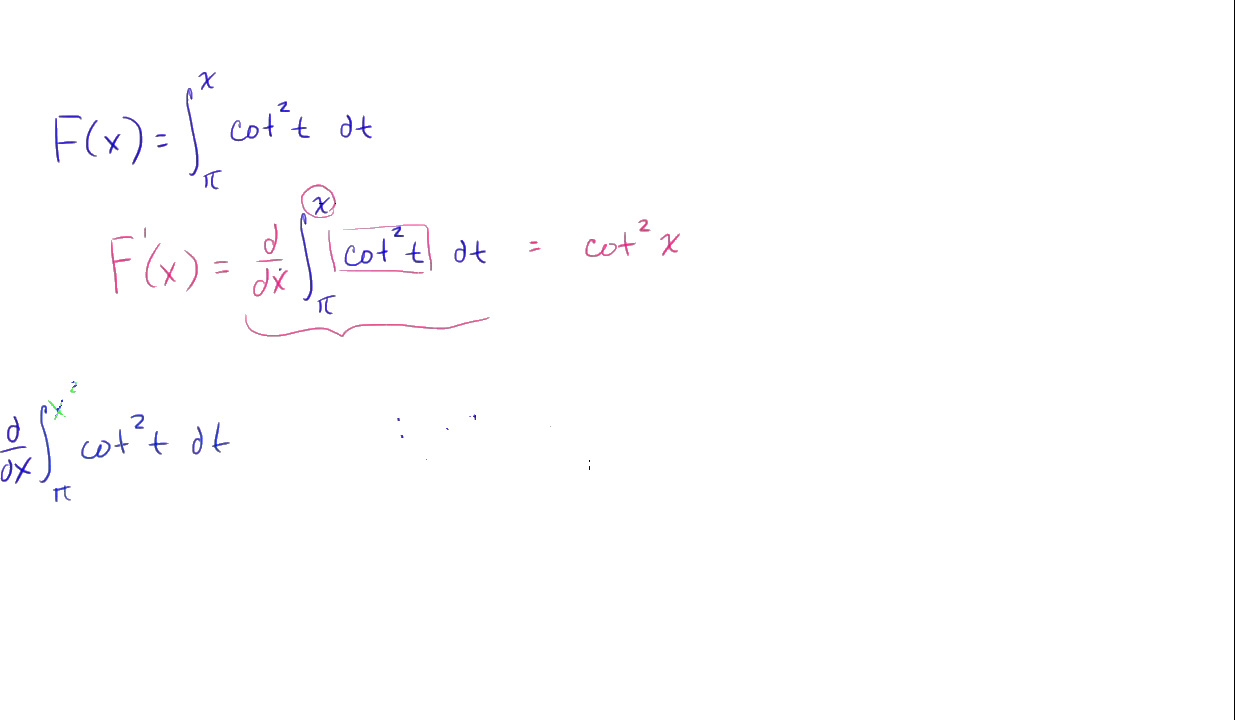 F(x) = ∫_π^x cot²t dt
F'(x) = d/dx ∫_π^x cot²t dt = cot²x
d/dx ∫_π^x² cot²t dt